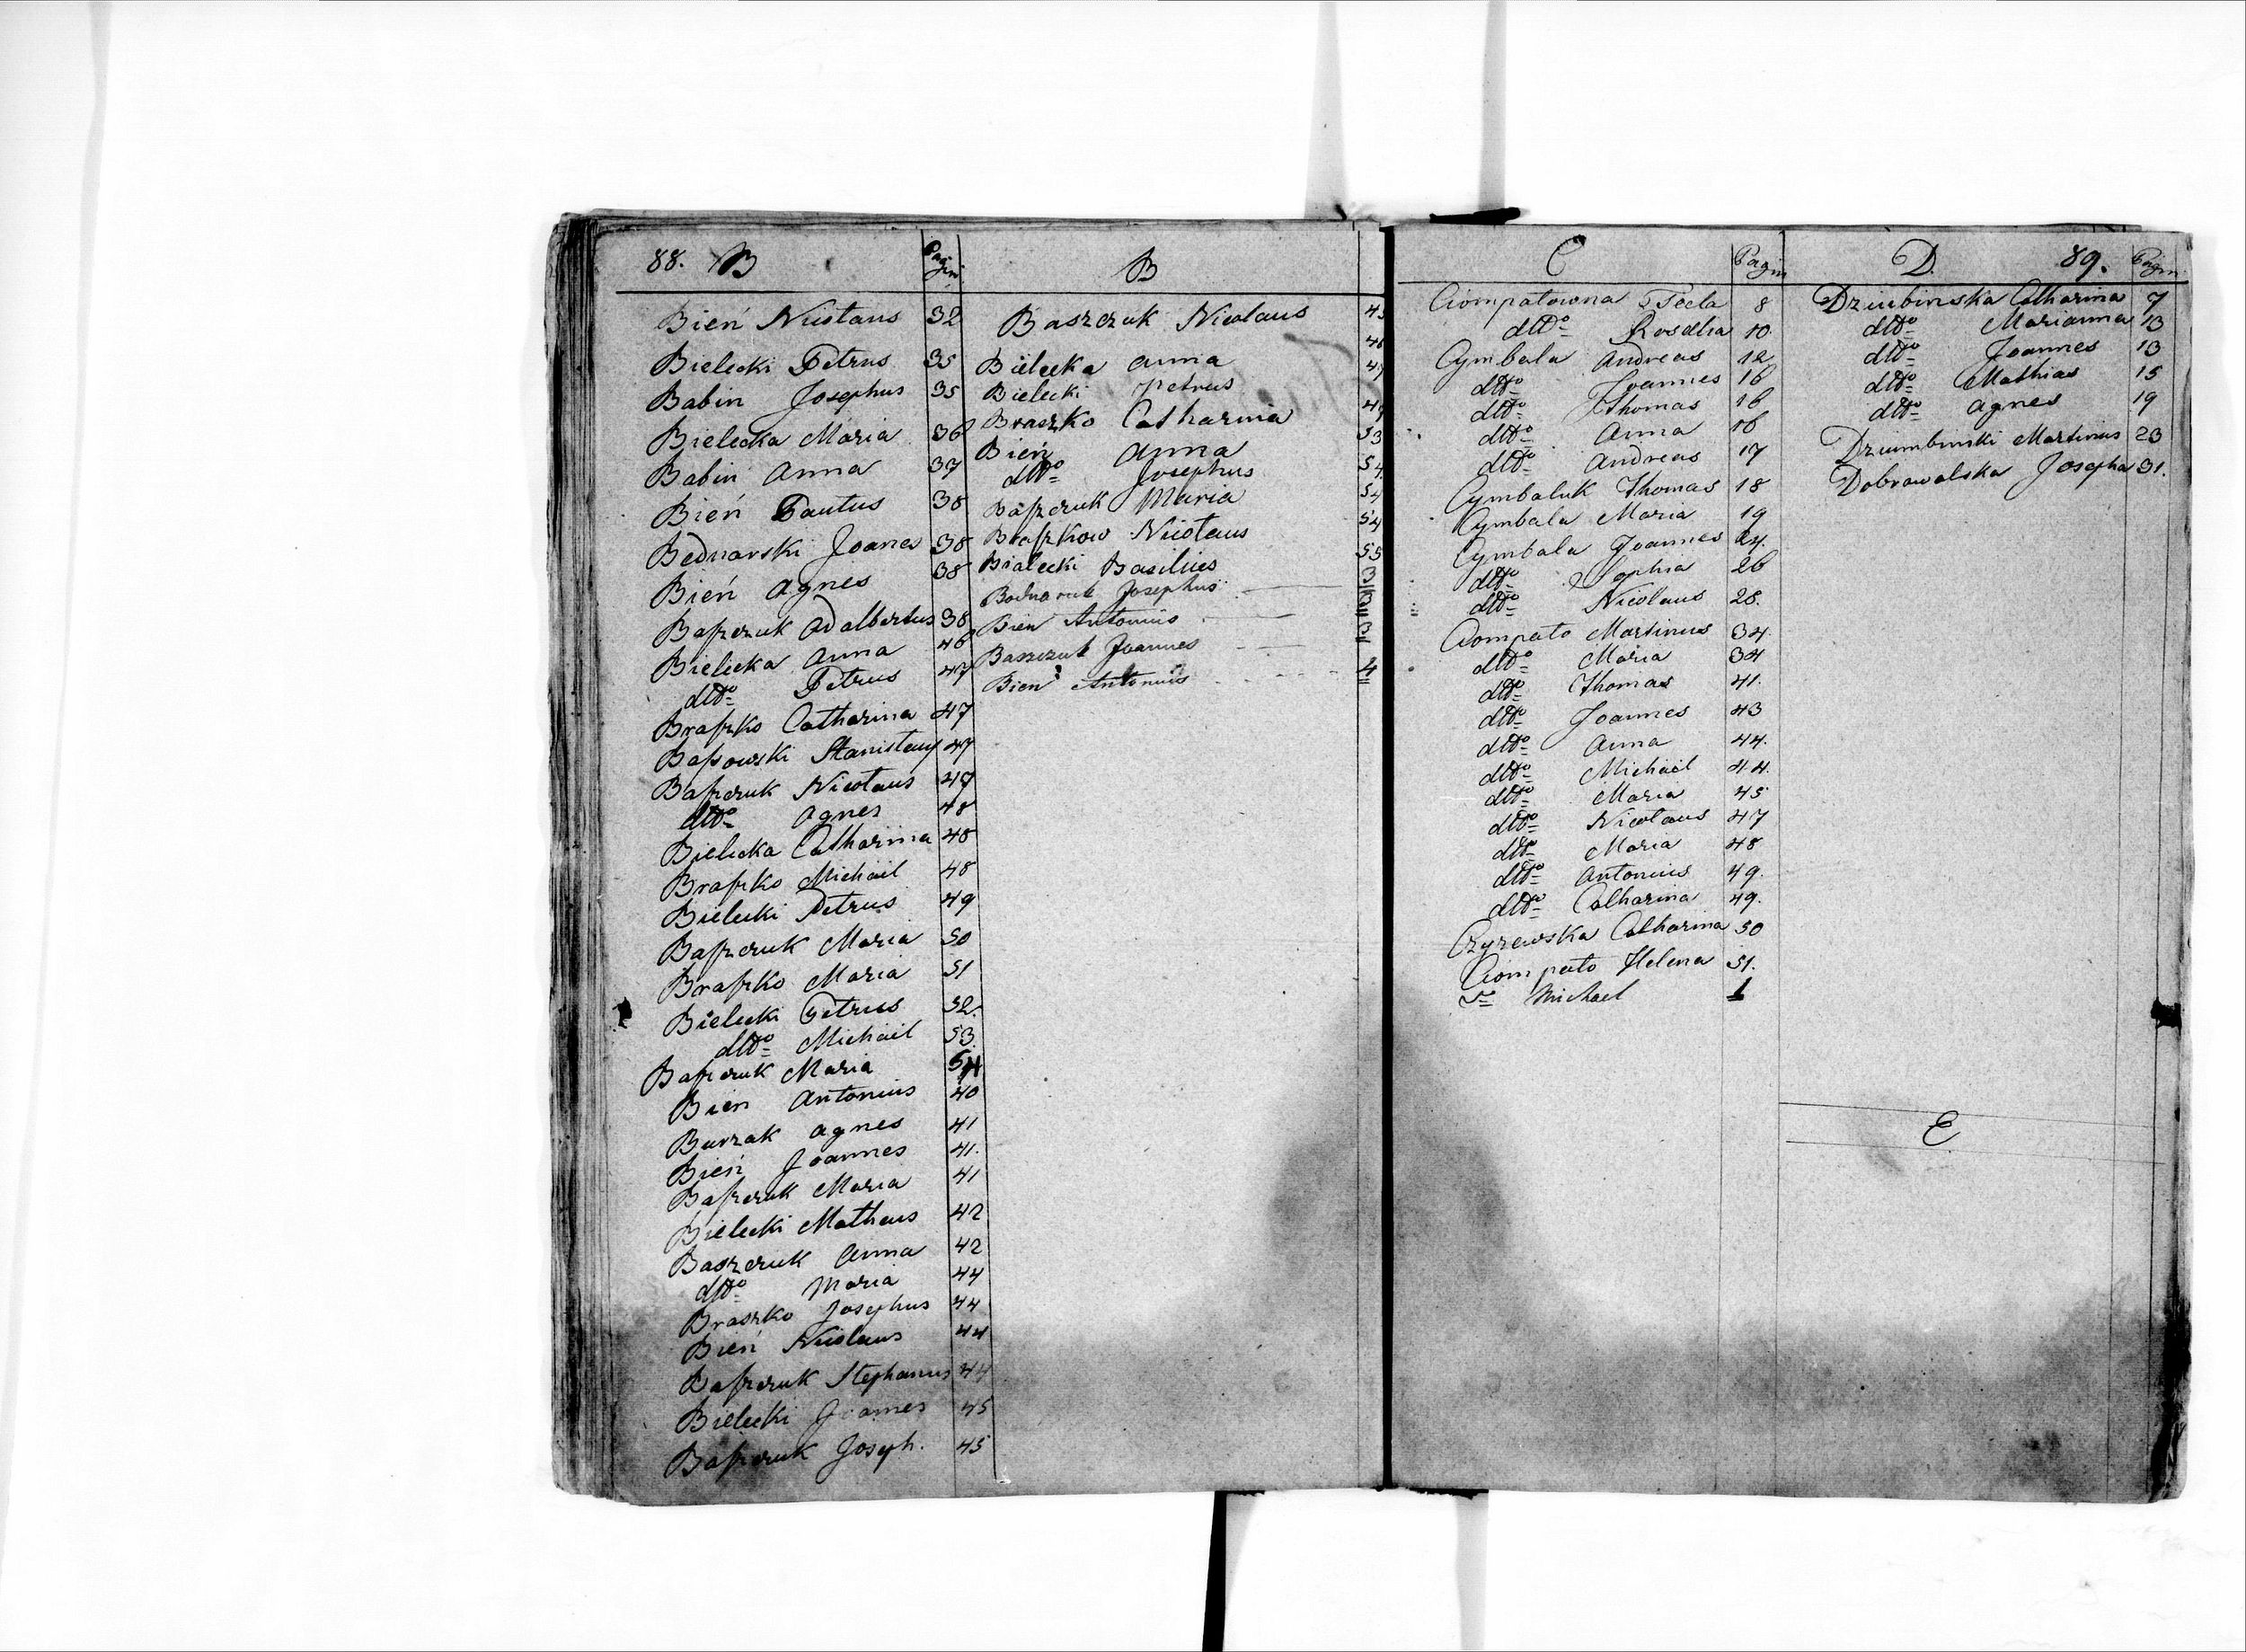 88. B Pagin
Bień Nicolaus 32
Bielecki Petrus 35
Babin Josephus 35
Bielecka Maria 36
Babin Anna 37
Bień Paulus 38
Bednarski Joanes 38
Bień Agnes 38
Baſzczuk Adalbertus 38
Bielecka Anna 46
dtto Petrus 47
Braſzko Catharina 47
Baſsowski Stanislaus 47
Baſzczuk Nicolaus 47
dtto Agnes 48
Bielecka Catharina 48
Braſzko Michäil 48
Bielecki Petrus 49
Baſzczuk Maria 50
Braſzko Maria 51
Bielecki Petrus 52.
dtto Michäil 53.
Baſzczuk Maria 54
Bien Antonius 40
Burzak Agnes 41
Bień Joannes 41.
Baſzczuk Maria 41
Bielecki Matheus 42
Baszczuk Anna 42
dtto Maria 44
Braszko Josephus 44
Bień Nicolaus 44
Baſzczuk Stephanus 44
Bielecki Joannes 45
Baſzczuk Joseph. 45
B
Baszczuk Nicolaus
Bielecka Anna
Bielecki Petrus
Braszko Catharina
Bień Anna 53
dtto Josephus 54
Baſzczuk Maria 54
Braſzkow Nicolaus 54
Bialecki Basilius 55
Bodnaruk Josephus 3
Bien Antonius
Baszczuk Joannes 3
Bien Antonius 4
C Pagin
Ciompatowna Tecla 8
dtto Rosalia 10.
Cymbala Andreas 12
dtto Joannes 16
dtto Thomas 16
dtto Anna 16
dtto Andreas 17
Cymbaluk Thomas 18
Cymbala Maria 19
Cymbala Joannes 24.
dtto Sophia 26
dtto Nicolaus 28.
Ciompato Martinus 34.
dtto Maria 34
dtto Thomas 41.
dtto Joannes 43
dtto Anna 44.
dtto Michäil 44.
dtto Maria 45
dtto Nicolaus 47
dtto Maria 48
dtto Antonius 49.
dtto Catharina 49.
Czyzewska Catharina 50
Ciompato Helena 51.
Michael 1
D. 89. Pagin.
Dziubinska Catharina 7
dtto Marianna 13
dtto Joannes 13
dtto Mathias 15
dtto Agnes 19
Dziumbinski Martinus 23
Dobrowolska Josepha 31.
E